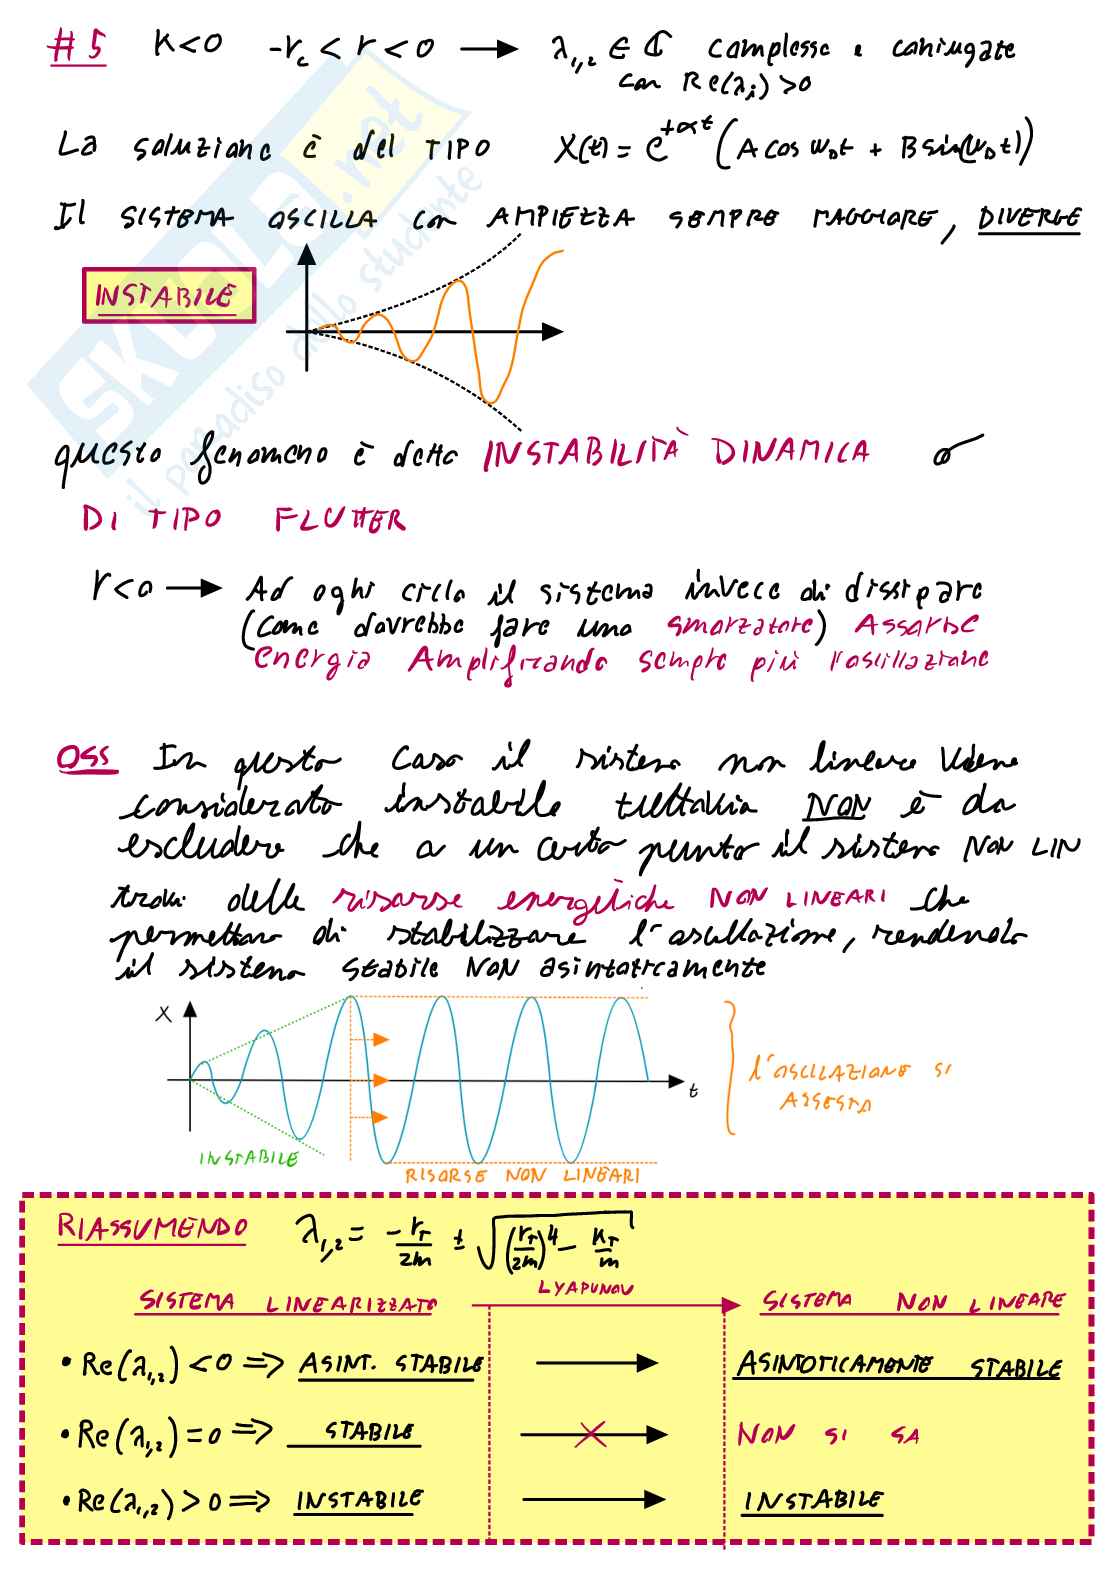 #5 K<0 -rc < r < 0 → λ1,2 ∈ ℂ complesse e coniugate
con Re(λi) >0
La soluzione è del TIPO X(t) = e^{+αt} (A cos ωDt + B sin(ωDt))
Il SISTEMA OSCILLA con AMPIEZZA SEMPRE MAGGIORE, DIVERGE
INSTABILE
questo fenomeno è detto INSTABILITÀ DINAMICA o
DI TIPO FLUTTER
r<0 → Ad ogni ciclo il sistema invece di dissipare
(come dovrebbe fare uno smorzatore) Assorbe
energia Amplificando sempre più l'oscillazione
OSS In questo caso il sistema non lineare viene
considerato instabile tuttavia NON è da
escludere che a un certo punto il sistema NON LIN
trovi delle risorse energetiche NON LINEARI che
permettano di stabilizzare l'oscillazione, rendendolo
il sistema stabile NON asintoticamente
X
t
l'OSCILLAZIONE SI
ASSESTA
INSTABILE
RISORSE NON LINEARI
RIASSUMENDO λ1,2 = -rT/2m ± √((rT/2m)^4 - KT/m)
LYAPUNOV
SISTEMA LINEARIZZATO SISTEMA NON LINEARE
• Re(λ1,2) <0 => ASINT. STABILE → ASINTOTICAMENTE STABILE
• Re(λ1,2) =0 => STABILE → NON SI SA
• Re(λ1,2) >0 => INSTABILE → INSTABILE
SKUOLA.net
il paradiso dello studente